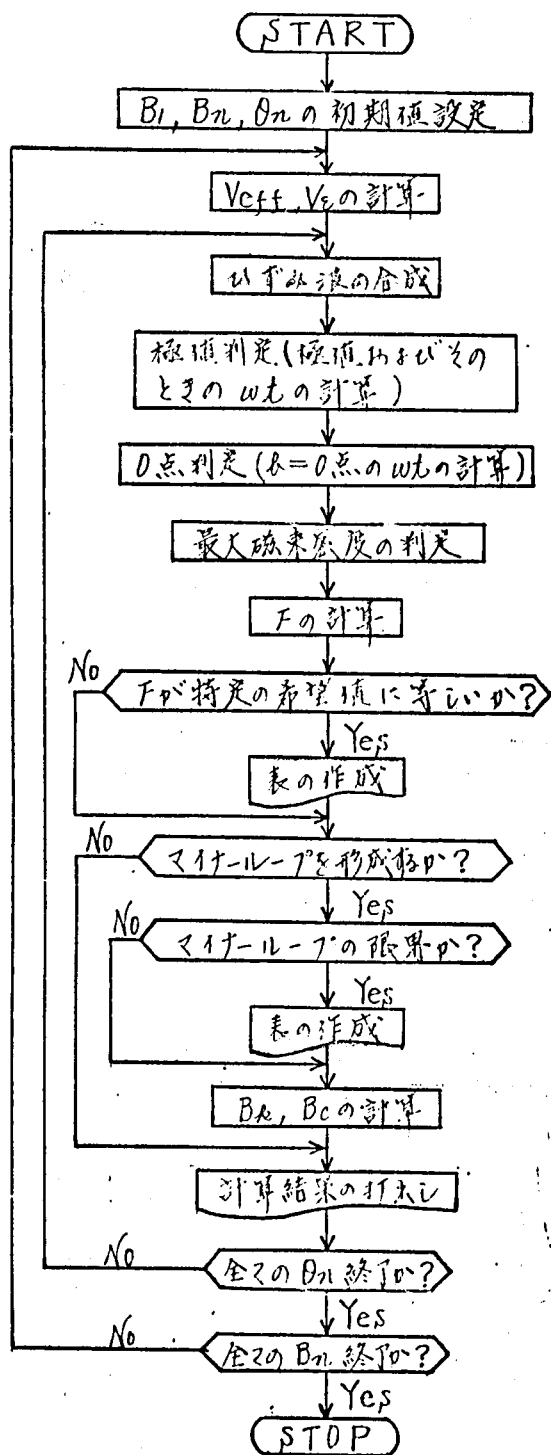 START
B1, Bn, θnの初期値設定
Veff, Vεの計算
ひずみ波の合成
極値判定(極値およびその
ときのωtの計算)
0点判定(b=0点のωtの計算)
最大磁束密度の判定
Fの計算
No
Fが特定の希望値に等しいか?
Yes
表の作成
No
マイナーループを形成するか?
Yes
No
マイナーループの限界か?
Yes
表の作成
Bk, Bcの計算
計算結果の打出し
No
全てのθn終了か?
Yes
No
全てのBn終了か?
Yes
STOP